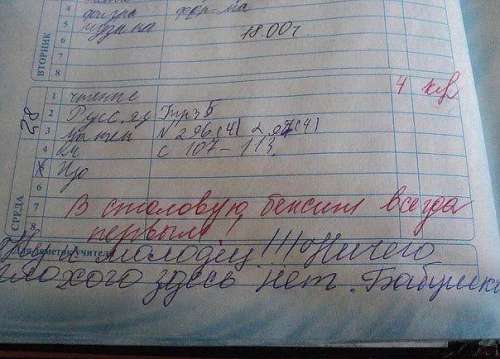 физра форма
музыка 18.00ч
4
5
6
7
8
ВТОРНИК
28
1 чтение 4
2 Русс. яз Упр 5
3 № 296(4) 297(4)
4 с 107-113
ИЗО
6
7 В столовую бежит всегда
8 первым!
СРЕДА
молодец!!! Ничего
плохого здесь нет. Бабушка